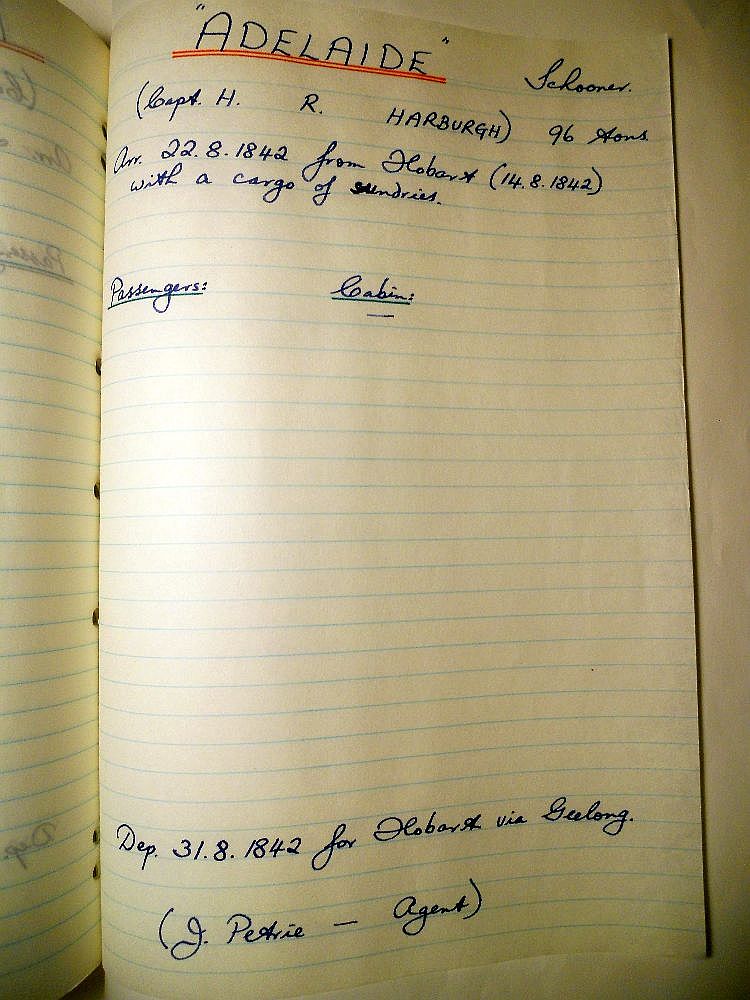 "ADELAIDE"
Schooner.
(Capt. H. R. HARBURGH) 96 tons.
Arr. 22.8.1842 from Hobart (14.8.1842)
with a cargo of sundries.
Passengers: Cabin:
—
Dep. 31.8.1842 for Hobart via Geelong.
(J. Petrie — Agent)